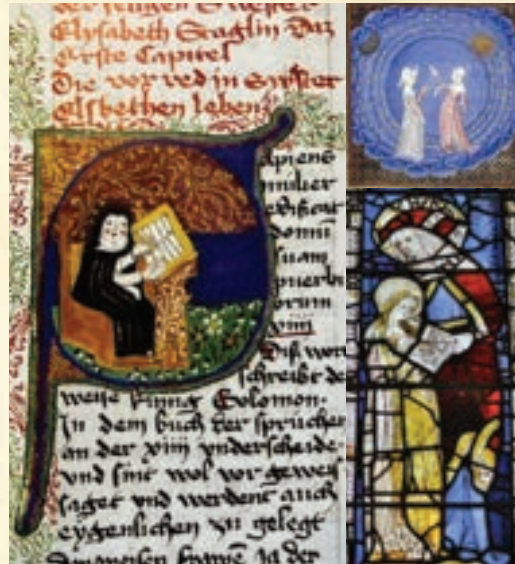 der heiligen Swester
Elysabeth Staglin Daz
erste Capitel
Die vor red in Swester
Elsbethen leben
apiens
mulier
edificat
domū
suam
puerbi
orum
xiiij
Diß wort
schreibt de
weise kunig Salomon.
In dem buch der sprüchen
an der xiiij vnderscheide.
vnd sint wol vor geweis
saget vnd werdent auch
eygenlichen zu gelegt
der